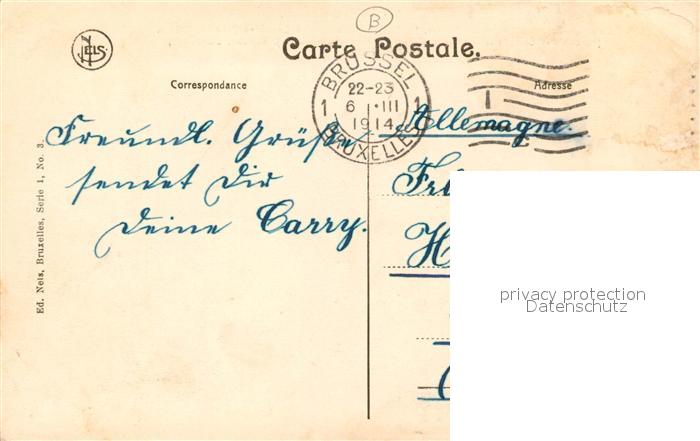 B
NELS
Carte Postale.
Correspondance
Adresse
BRUSSEL
22-23
1 6 III 1
1914
BRUXELLES
Allemagne.
Freundl. Grüße
sendet Dir
Deine Carry.
Frl
Ed. Nels, Bruxelles, Serie 1, No. 3.
privacy protection
Datenschutz